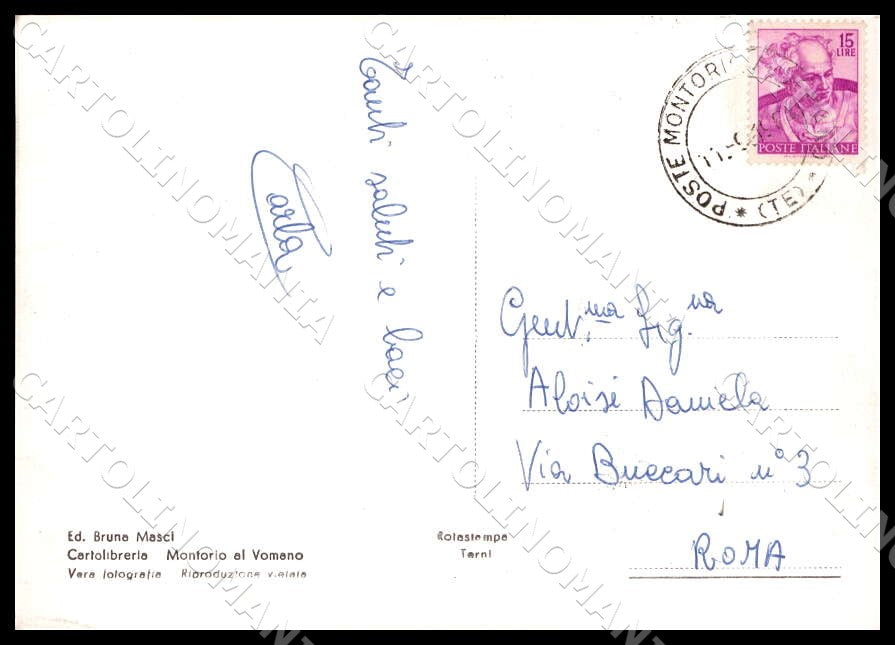 Tanti saluti e baci
Carla
15
LIRE
POSTE ITALIANE
POSTE MONTORI
* (TE) *
Gent.ma Sig.na
Aloisi Daniela
Via Buccari n° 3
ROMA
Ed. Bruna Masci
Cartolibreria Montorio al Vomano
Vera fotografia Riproduzione vietata
Rotastampa
Terni
CARTOLINOMANIA
CARTOLINOMANIA
CARTOLINOMANIA
CARTOLINOMANIA
CARTOLINOMANIA
CARTOLINOMANIA